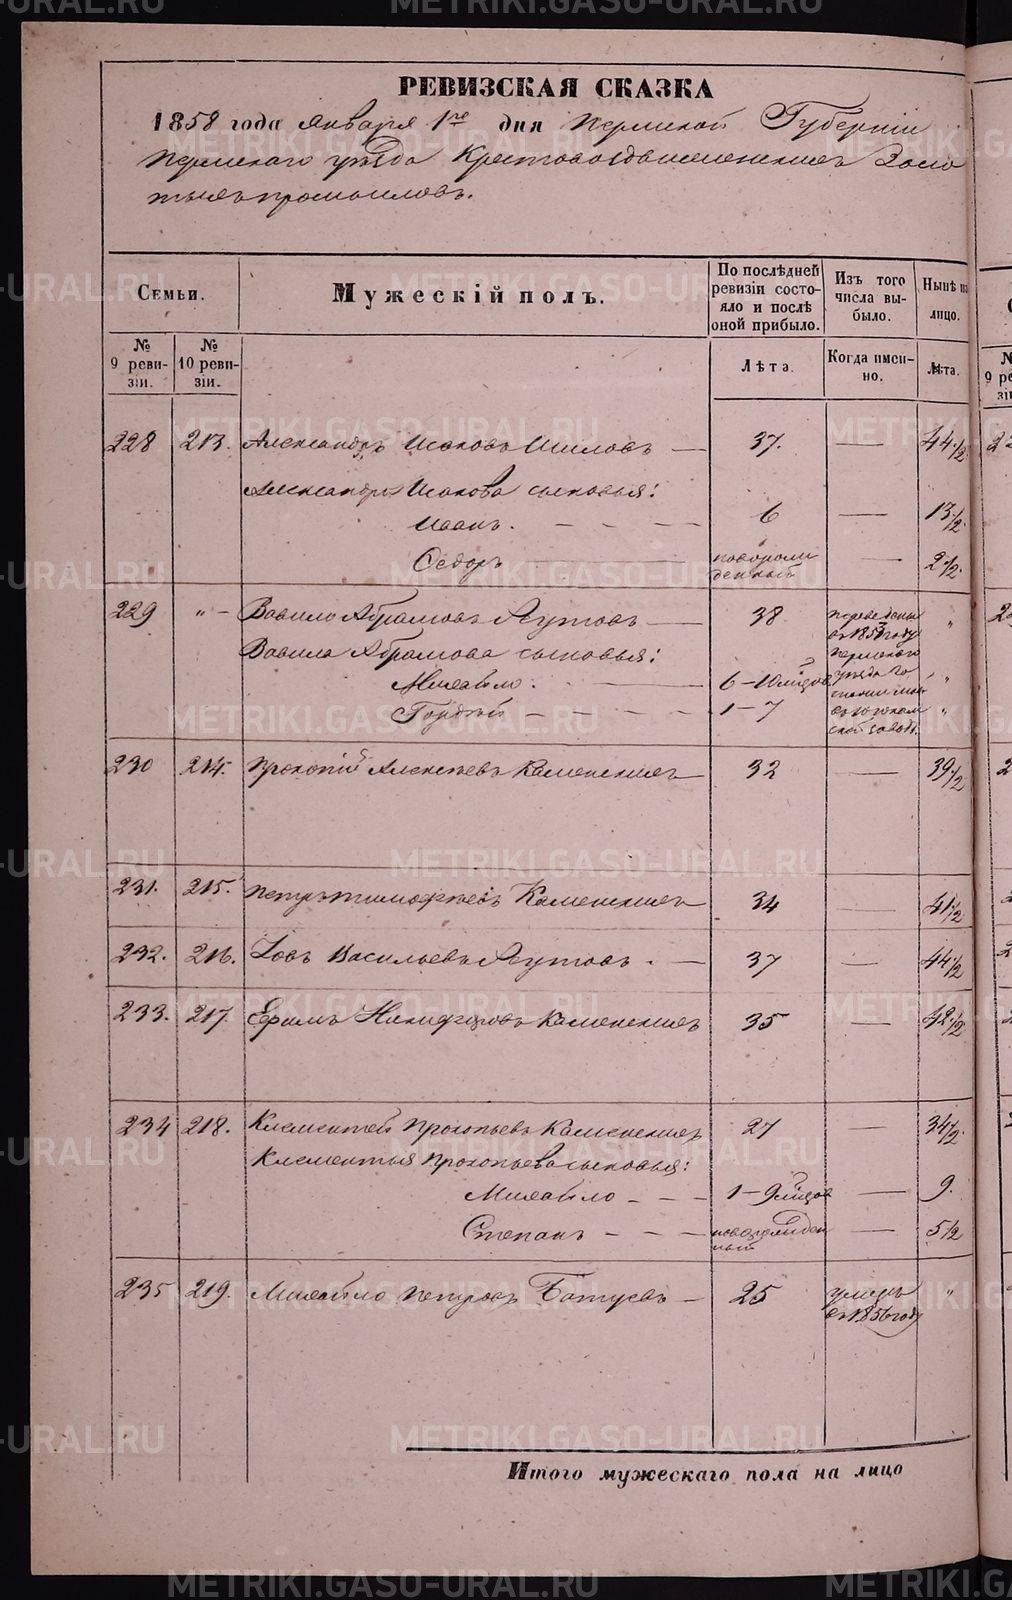 РЕВИЗСКАЯ СКАЗКА
1858 года Января 1го дня Пермской Губерніи
Пермскаго уѣзда Крестовоздвиженскихъ Золо
тыхъ промысловъ.
Семьи.
Мужескій полъ.
По послѣдней ревизіи состояло и послѣ оной прибыло.
Изъ того числа выбыло.
Нынѣ на лицо.
№ 9 ревизіи.
№ 10 ревизіи.
Лѣта
Когда именно.
Лѣта.
228 213. Александръ Исаковъ Шиловъ — 37. — 44½
Александра Исакова сыновья:
Иванъ. — 6 — 13½
Ѳедоръ новорожденный — 2½
229 „ – Вавило Абрамовъ Якутовъ — 38 переведены въ 185 году Пермскаго уѣзда „
Вавила Абрамова сыновья:
Михайло. — 6–10 мѣсцовъ „
Гордѣй — 1–7 „
230 214. Прокопій Алексѣевъ Каменскихъ 32 — 39½
231. 215. Петръ Тимофѣевъ Каменскихъ 34 — 41½
232. 216. Іовъ Васильевъ Якутовъ. — 37 — 44½
233. 217. Ефимъ Никифоровъ Каменскихъ 35 — 42½
234 218. Клементей Прокопьевъ Каменскихъ 27 — 34½
Клементья Прокопьева сыновья:
Михайло — 1–9 мѣсцов — 9.
Степанъ — новорожденный — 5½
235 219. Михайло Петровъ Батуевъ — 25 умеръ въ 1856 году „
Итого мужескаго пола на лицо
METRIKI.GASO-URAL.RU